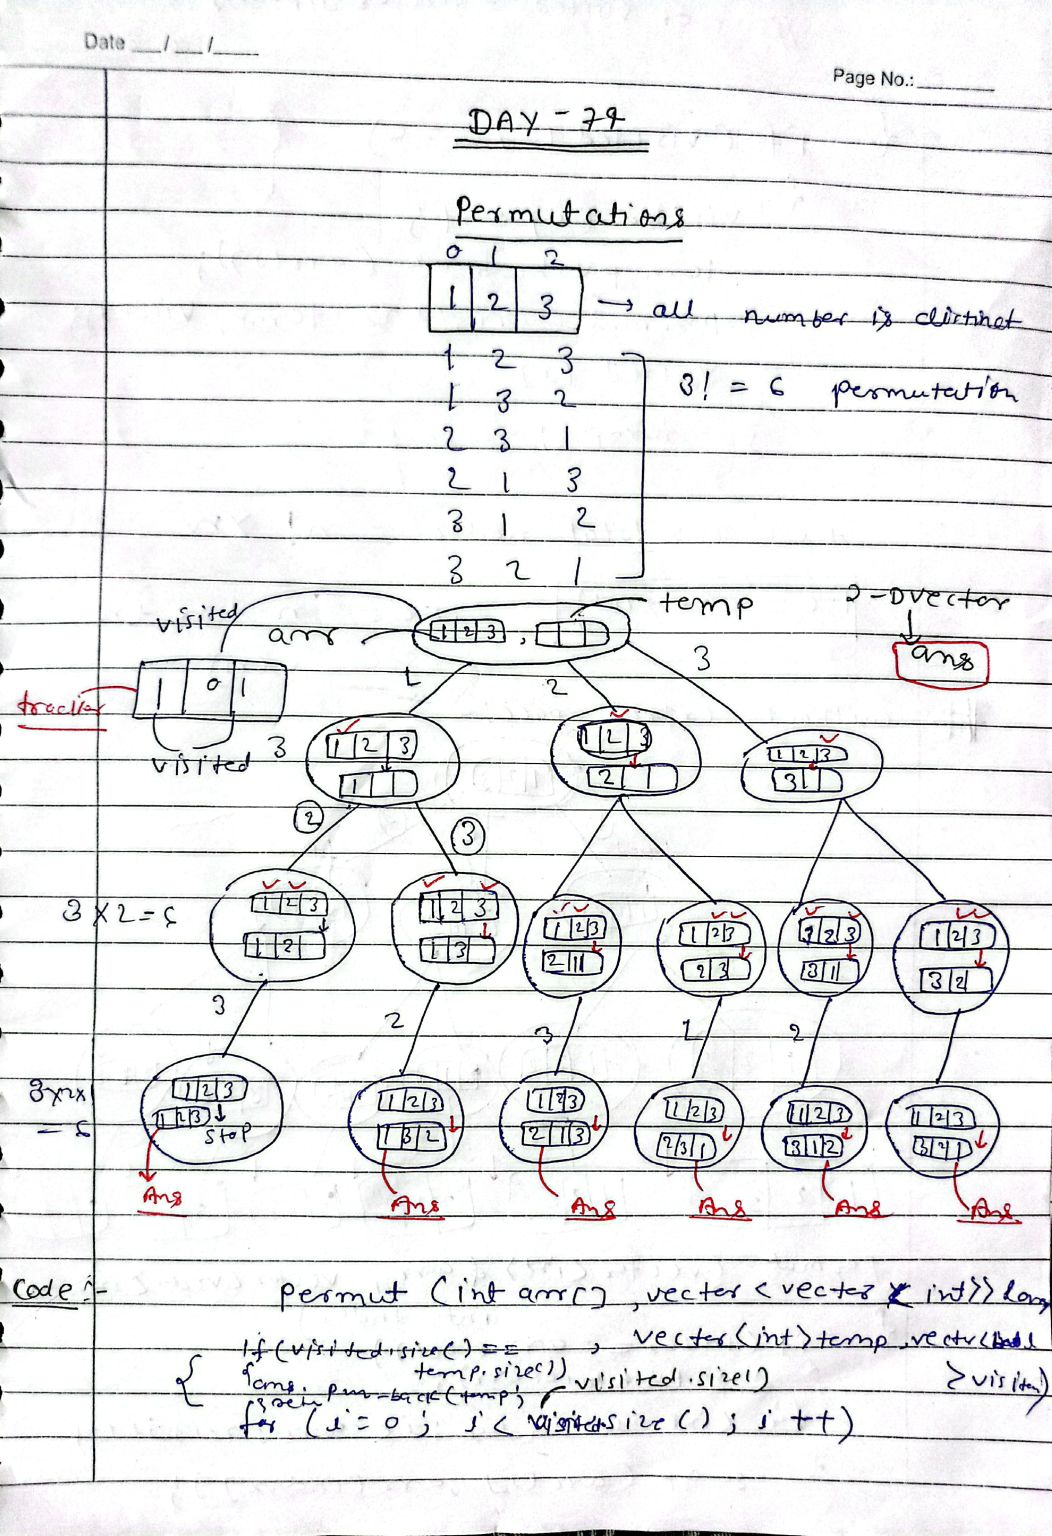 Date __/__/____
Page No.: ______
DAY - 79
Permutations
0 1 2
1 2 3 → all number is distinct
1 2 3
1 3 2
2 3 1
2 1 3
3 1 2
3 2 1
3! = 6 permutation
visited
arr
1 2 3 ,
temp
2-D vector
ans
1 0 1
tracker
visited
1 2 3
3
1 2 3
1
1 2 3
2
1 2 3
3 1
2 3
3 x 2 = 6
1 2 3
1 2
1 2 3
1 3
1 2 3
2 1
1 2 3
2 3
1 2 3
3 1
1 2 3
3 2
3 2 3 1 2
3x2x1
= 6
1 2 3
1 2 3
stop
1 2 3
1 3 2
1 2 3
2 1 3
1 2 3
2 3 1
1 2 3
3 1 2
1 2 3
3 2 1
Ans Ans Ans Ans Ans Ans
Code :-
permut (int arr[] , vector < vector < int>>
, vector<int> temp, vector<
> visited)
{ if (visited.size() ==
temp.size())
{ans. push-back (temp);
visited.size()
for (i = 0 ; i < size () ; i ++)